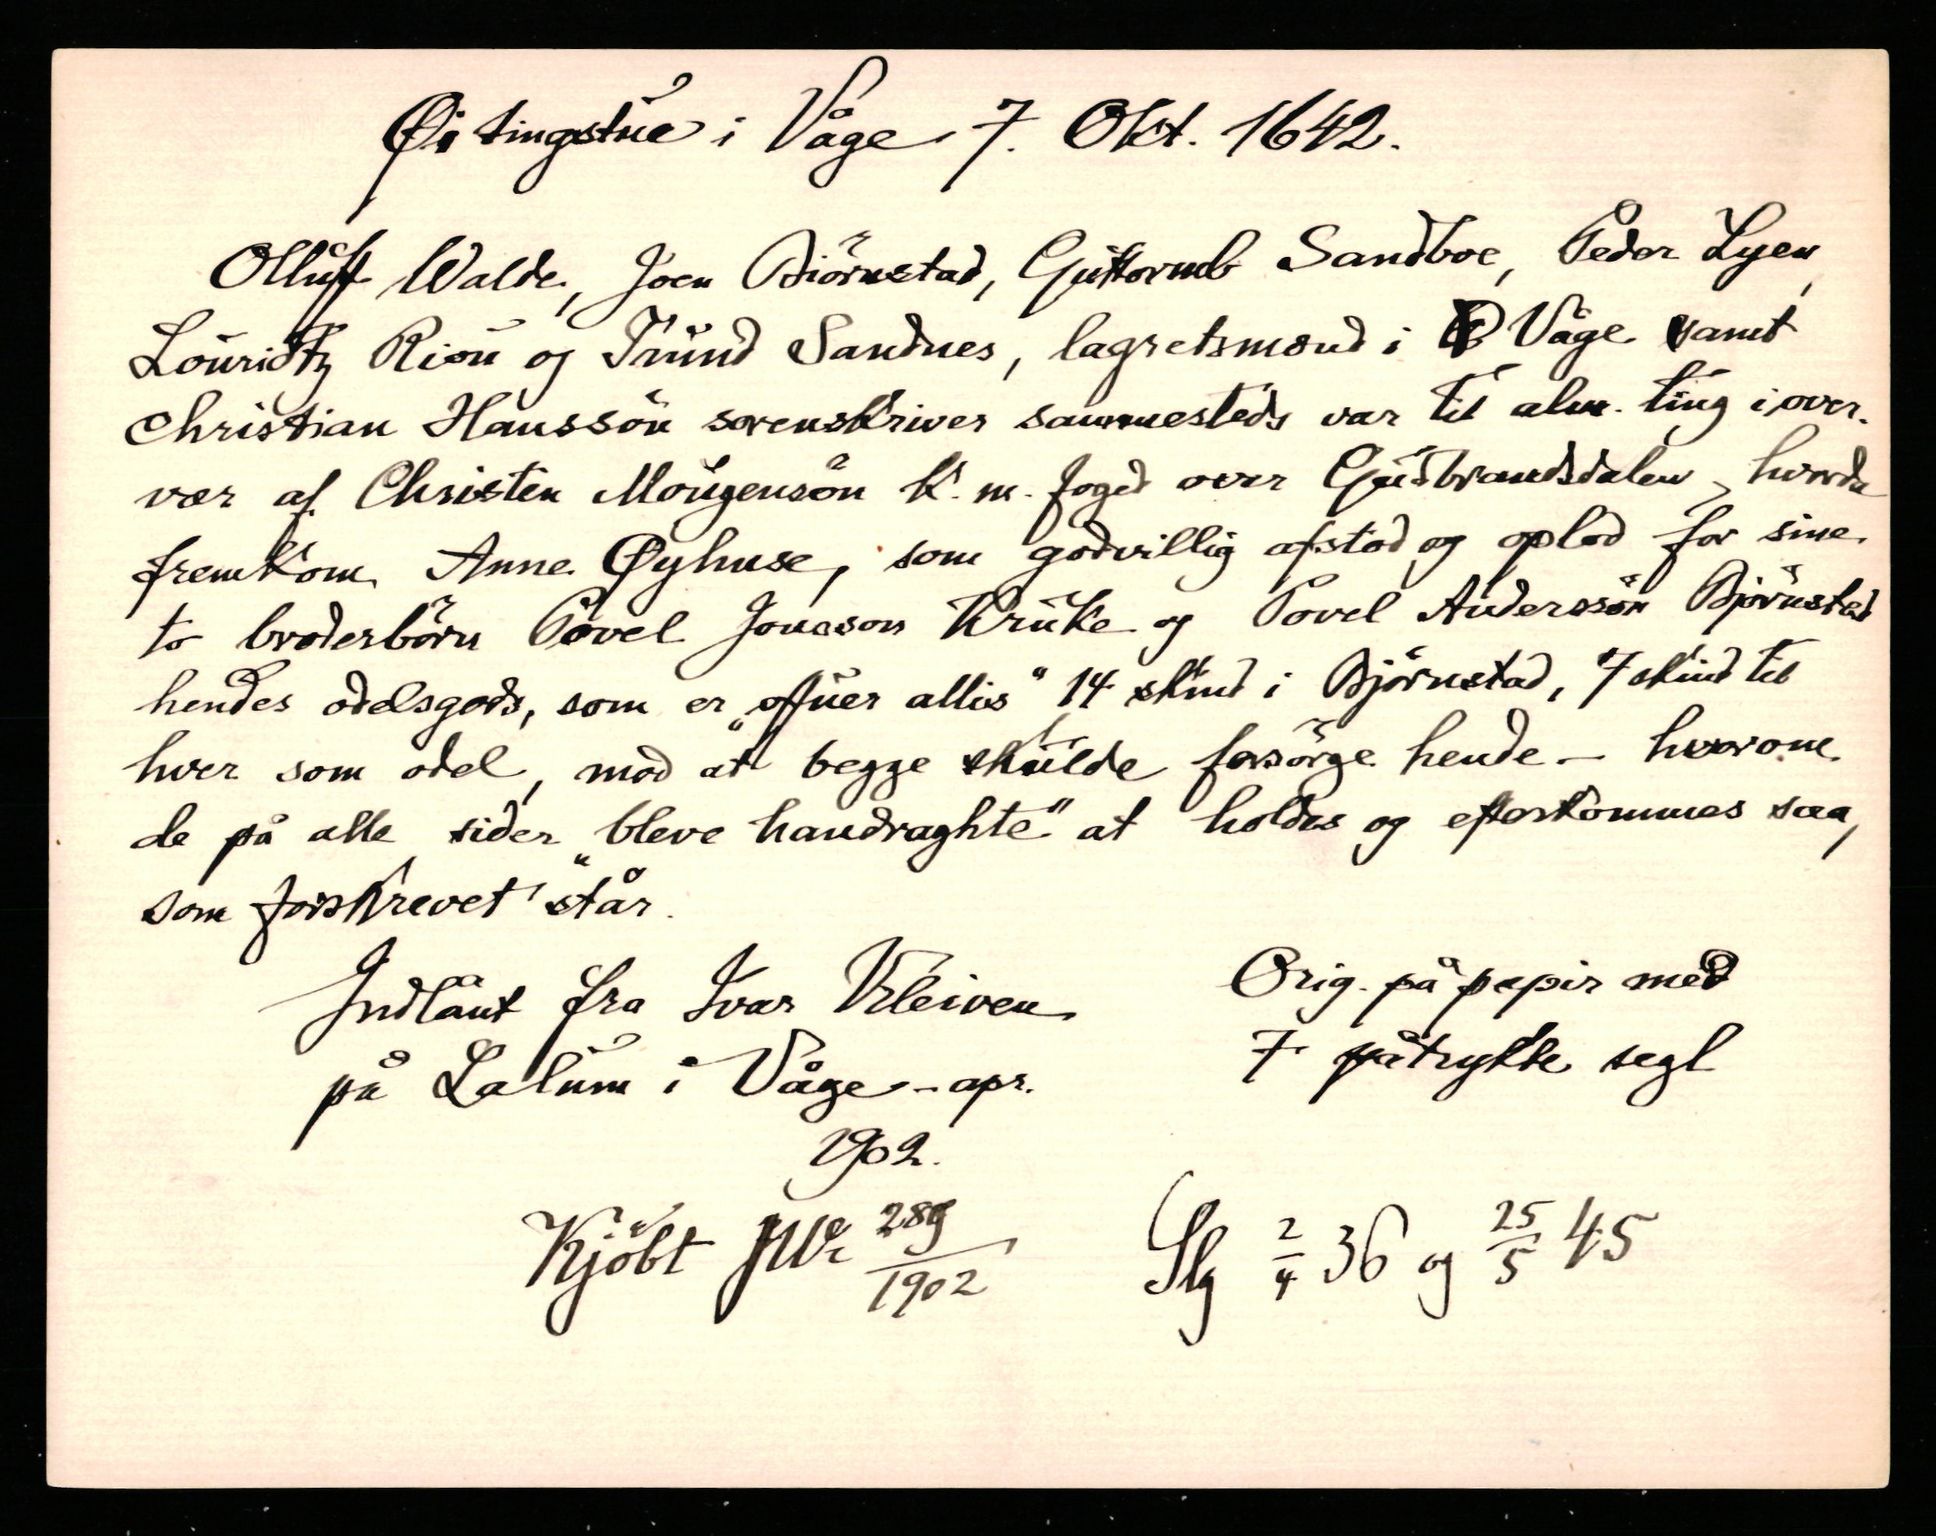 Øi tingstue i Våge 7. Okt. 1642.
Olluff Walde, Joen Biörnstad, Guttormb Sandboe, Peder Lyen,
Louridtz Riou og Trund Sandnes, lagretsmænd i Våge samt
Christian Hanssön sorenskriver sammesteds var til alm. ting i over-
vær af Christen Mougensön k. m. foged over Gudbrandsdalen, hvorda
fremkom Anne Øyhuse, som godvillig afstod og oplod for sine
to broderbörn Povel Jonason Kruke og Povel Anderssön Björnstad
hendes odelsgods, som er "offuer allis" 14 skind i Björnstad, 7 skind til
hver som odel, mod at begge skulde forsörge hende — hvorom
de på alle sider "bleve handraghte" at holdes og efterkommes saa,
som forskrevet står.
Indlånt fra Ivar Kleiven
på Lalum i Våge – apr.
1902.
Orig. på papir med
7 påtrykte segl
Kjöbt 289/1902
Slg 2/4 36 og 25/5 45